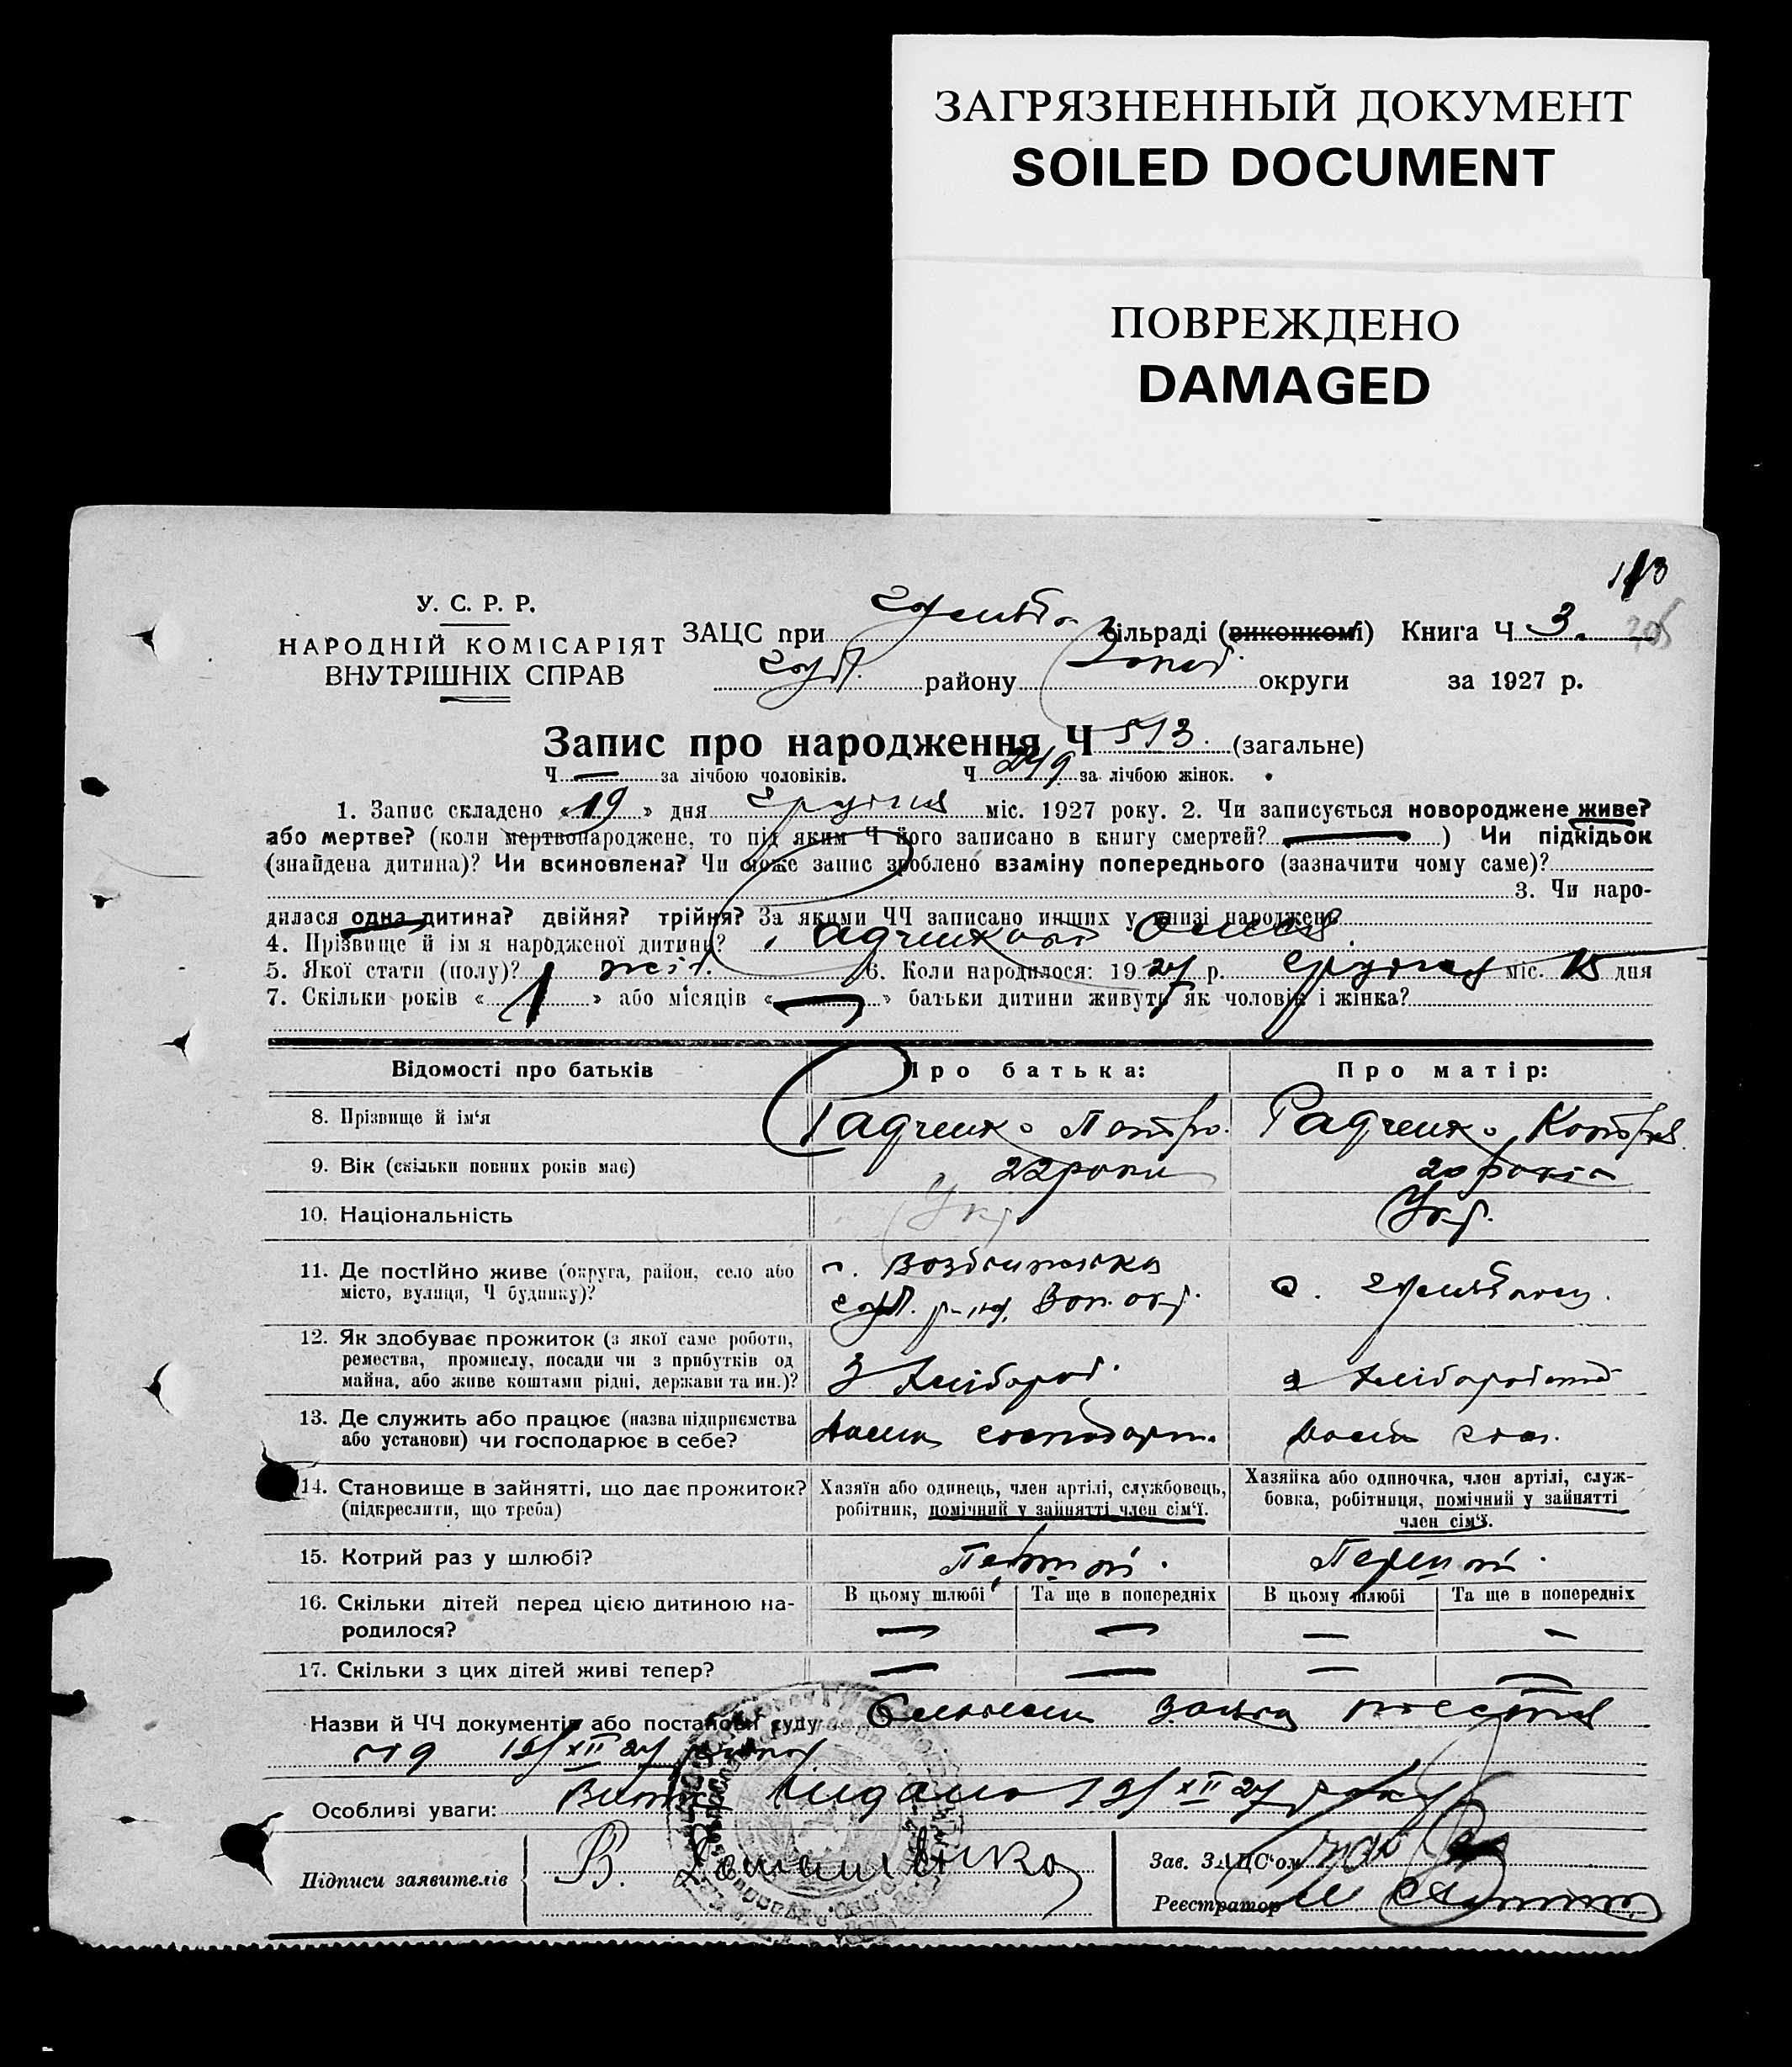 ЗАГРЯЗНЕННЫЙ ДОКУМЕНТ
SOILED DOCUMENT
ПОВРЕЖДЕНО
DAMAGED
У. С. Р. Р.
НАРОДНІЙ КОМІСАРІЯТ
ВНУТРІШНІХ СПРАВ
ЗАЦС при сільраді (виконкомі) Книга Ч 3.
району округи за 1927 р.
Запис про народження Ч 513. (загальне)
Ч — за лічбою чоловіків. Ч 249 за лічбою жінок.
1. Запис складено «19» дня грудня міс. 1927 року. 2. Чи записується новороджене живе?
або мертве? (коли мертвонароджене, то під яким Ч його записано в книгу смертей? — ) Чи підкідьок
(знайдена дитина)? Чи всиновлена? Чи може запис зроблено взаміну попереднього (зазначити чому саме)?
3. Чи наро-
дилася одна дитина? двійня? трійня? За якими ЧЧ записано инших у книзі народжень
4. Прізвище й ім'я народженої дитини? Радченкова Олеся.
5. Якої статі (полу)? жін. 6. Коли народилося: 1927 р. грудня міс. 15 дня
7. Скільки років « 1 » або місяців « — » батьки дитини живуть як чоловік і жінка?
Відомості про батьків Про батька: Про матір:
8. Прізвище й ім'я Радченко Петро. Радченко Катря
9. Вік (скільки повних років має) 22 роки 20 років
10. Національність Укр. Укр.
11. Де постійно живе (округа, район, село або
місто, вулиця, Ч будинку)?
с. Воздвижівка
р-ну, Зап. окр.
12. Як здобуває прожиток (з якої саме роботи,
ремества, промислу, посади чи з прибутків од
майна, або живе коштами рідні, держави та ин.)?
З хлібороб. з хліборобства
13. Де служить або працює (назва підприємства
або установи) чи господарює в себе?
14. Становище в зайнятті, що дає прожиток?
(підкреслити, що треба)
Хазяїн або одинець, член артілі, службовець,
робітник, помічний у зайнятті член сім'ї.
Хазяйка або одиночка, член артілі, служ-
бовка, робітниця, помічний у зайнятті
член сім'ї.
15. Котрий раз у шлюбі? Перший. Перший.
16. Скільки дітей перед цією дитиною на-
родилося?
В цьому шлюбі Та ще в попередніх В цьому шлюбі Та ще в попередніх
— — — —
17. Скільки з цих дітей живі тепер? — — — —
Назви й ЧЧ документів або постанови суду
19/XII 27 року
Особливі уваги: Витяг видано 19/XII 27 року
Підписи заявителів В.
Зав. ЗАЦС'ом
Реєстратор